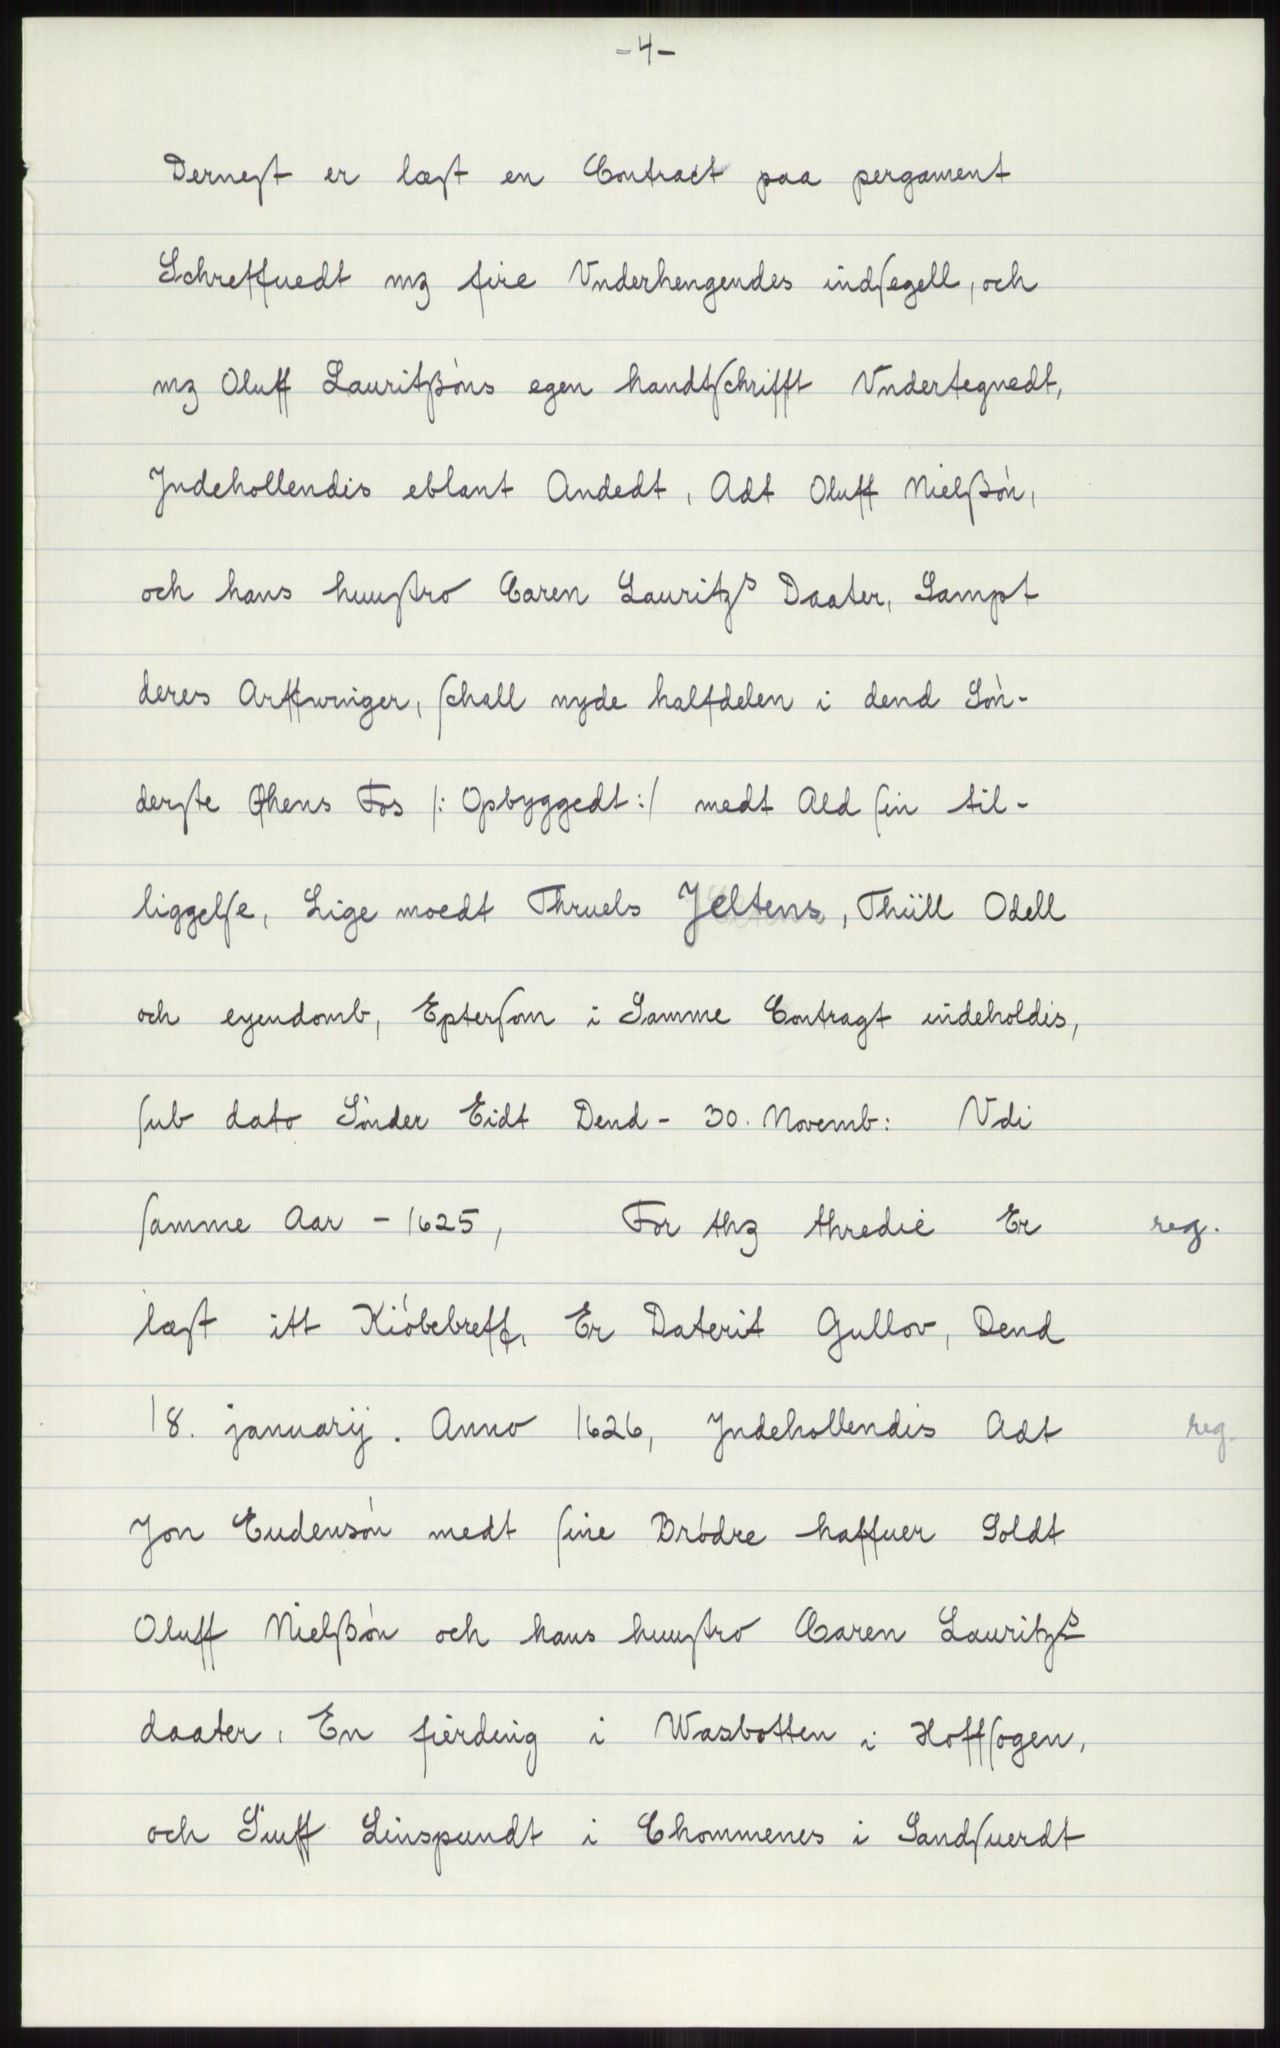 -4-
Dernest er læst en Contract paa pergament
Schreffuedt mz fire Vnderhengendes indsegell, och
mz Oluff Lauritßøns egen handtschrifft Vndertegnedt,
Jndehollendis eblant Andedt, Adt Oluff Nielßøn,
och hans huustro Caren Lauritzs Daater, Sampt
deres Arffwinger, schall nyde halfdelen i dend Søn-
derste Øhens Fos /: Opbyggedt :/ medt Ald sin til-
liggelse, Lige moedt Thruels Jeltens, Thiill Odell
och eyendomb, Eptersom i Samme Contragt indeholdis,
sub dato Sønder Eidt Dend - 30. Novemb: Vdi
samme Aar - 1625, For thz thredie Er reg.
læst itt Kiøbebreff, Er Daterit Gullov, Dend
18. januarij. Anno 1626, Jndehollendis Adt reg.
Jon Eudensøn medt sine Brødre haffuer Soldt
Oluff Nielßøn och hans huustro Caren Lauritzs
daater, En fierding i Wasbotten i Hoffsogen,
och Siuff Linspundt i Chommenes i Sandsuerdt